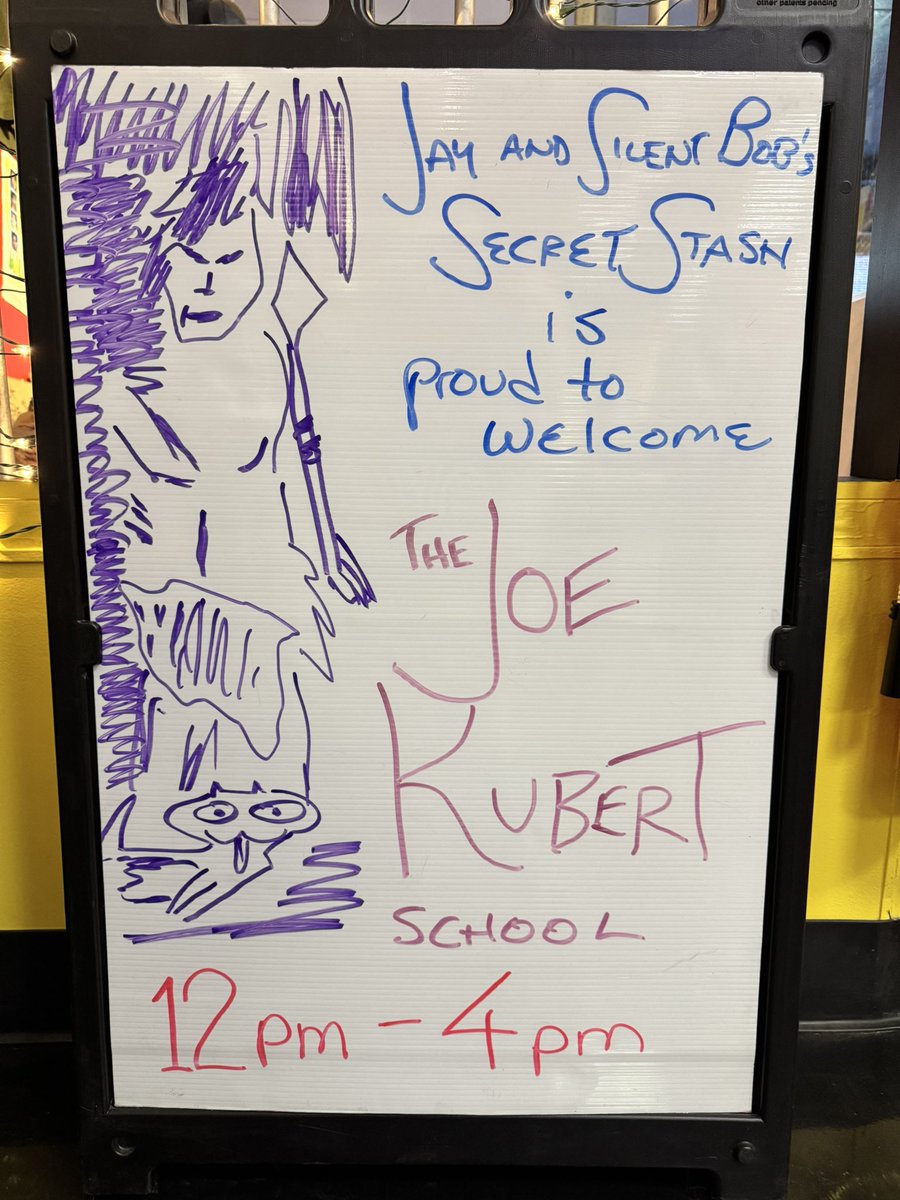 other patents pending
JAY AND SILENT BOB'S
SECRET STASH
is
proud to
welcome
THE JOE
KUBERT
SCHOOL
12pm - 4pm